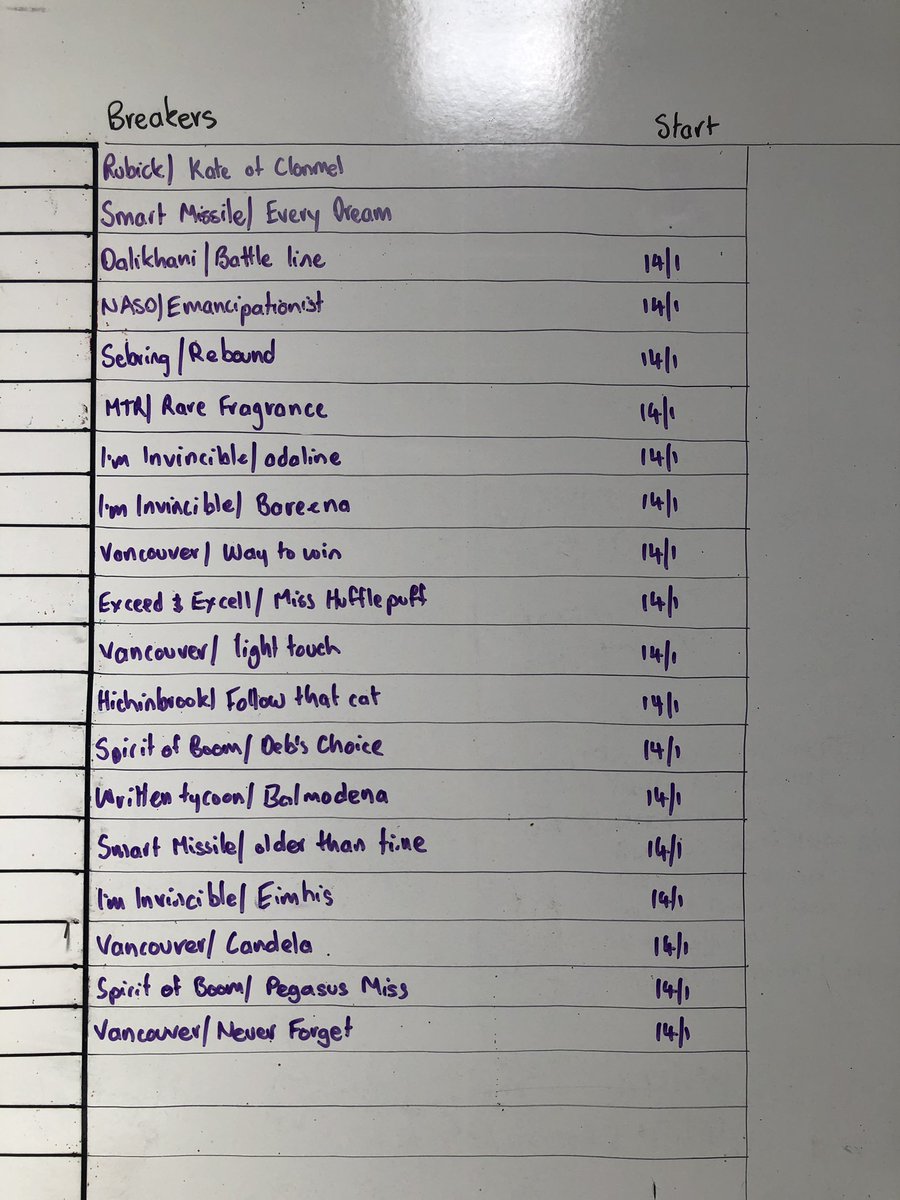 Breakers Start
Rubick/ Kate of Clonmel
Smart Missile/ Every Dream
Dalikhani/Battle line 14/1
NASO/Emancipationist 14/1
Sebring/Rebound 14/1
MTR/ Rare Fragrance 14/1
I'm Invincible/ odaline 14/1
I'm Invincible/ Boreena 14/1
Vancouver/ Way to win 14/1
Exceed & Excell/ Miss Hufflepuff 14/1
Vancouver/ light touch 14/1
Hichinbrook/ Follow that cat 14/1
Spirit of Boom/ Deb's Choice 14/1
Written tycoon/ Balmodena 14/1
Smart Missile/ older than time 14/1
I'm Invincible/ Eimhis 14/1
Vancouver/ Candela 14/1
Spirit of Boom/ Pegasus Miss 14/1
Vancouver/ Never Forget 14/1